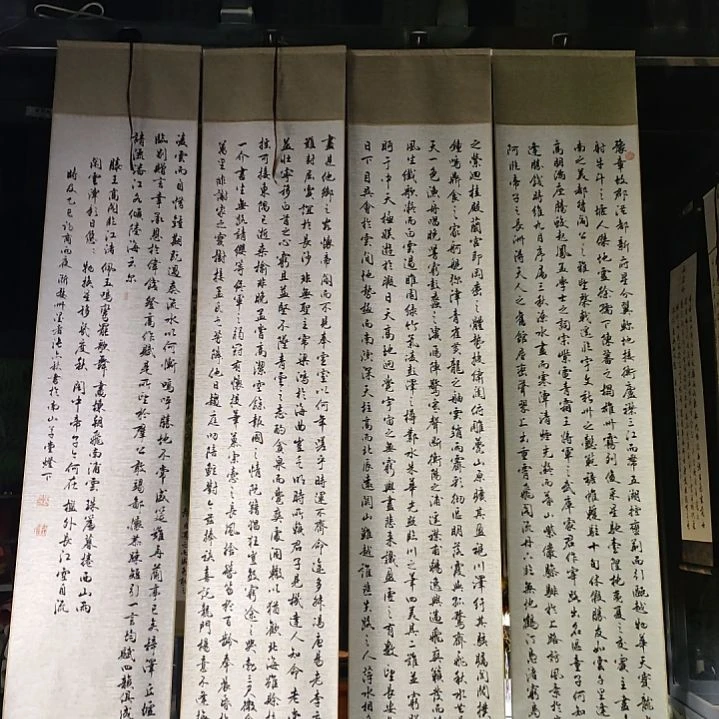 豫章故郡洪都新府星分翼軫地接衡廬襟三江而帶五湖控蠻荊而引甌越物華天寶龍
射牛斗之墟人傑地靈徐孺下陳蕃之榻雄州霧列俊采星馳臺隍枕夷夏之交賓主盡
南之美都督閻公之雅望棨戟遙臨宇文新州之懿範襜帷暫駐十旬休假勝友如雲千里逢
高朋滿座騰蛟起鳳孟學士之詞宗紫電青霜王將軍之武庫家君作宰路出名區童子何知
逢勝餞時維九月序屬三秋潦水盡而寒潭清煙光凝而暮山紫儼驂騑於上路訪風景於
阿臨帝子之長洲得天人之舊館層巒聳翠上出重霄飛閣流丹下臨無地鶴汀鳧渚窮島
之縈迴桂殿蘭宮即岡巒之體勢披繡闥俯雕甍山原曠其盈視川澤紆其駭矚閭閻撲
鐘鳴鼎食之家舸艦彌津青雀黃龍之舳雲銷雨霽彩徹區明落霞與孤鶩齊飛秋水共
天一色漁舟唱晚響窮彭蠡之濱雁陣驚寒聲斷衡陽之浦遙襟甫暢逸興遄飛爽籟發而
風生纖歌凝而白雲遏睢園綠竹氣凌彭澤之樽鄴水朱華光照臨川之筆四美具二難並窮睇
眄於中天極娛遊於暇日天高地迥覺宇宙之無窮興盡悲來識盈虛之有數望長安
日下目吳會於雲間地勢極而南溟深天柱高而北辰遠關山難越誰悲失路之人萍水相
盡是他鄉之客懷帝閽而不見奉宣室以何年嗟乎時運不齊命途多舛馮唐易老李廣
難封屈賈誼於長沙非無聖主竄梁鴻於海曲豈乏明時所賴君子見機達人知命老當
益壯寧移白首之心窮且益堅不墜青雲之志酌貪泉而覺爽處涸轍以猶歡北海雖賒
扶搖可接東隅已逝桑榆非晚孟嘗高潔空餘報國之情阮籍猖狂豈效窮途之哭勃三尺微命
一介書生無路請纓等終軍之弱冠有懷投筆慕宗愨之長風捨簪笏於百齡奉晨昏
萬里非謝家之寶樹接孟氏之芳鄰他日趨庭叨陪鯉對今茲捧袂喜託龍門楊意不逢撫
凌雲而自惜鍾期既遇奏流水以何慚嗚呼勝地不常盛筵難再蘭亭已矣梓澤丘墟
臨別贈言幸承恩於偉餞登高作賦是所望於群公敢竭鄙懷恭疏短引一言均賦四韻俱成
請灑潘江各傾陸海云爾
滕王高閣臨江渚佩玉鳴鸞罷歌舞畫棟朝飛南浦雲珠簾暮捲西山雨
閑雲潭影日悠悠物換星移幾度秋閣中帝子今何在檻外長江空自流
時在乙巳於南山草堂燈下